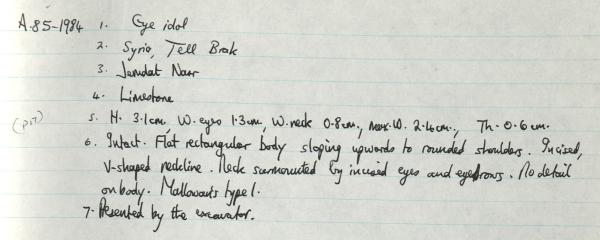 A.85-1984 1. Eye idol
2. Syria, Tell Brak
3. Jemdat Nasr
4. Limestone
(pot) 5. H. 3.1cm, W. eyes 1.3cm, W. neck 0.8cm, max. W. 2.4cm, Th. 0.6cm.
6. Intact. Flat rectangular body sloping upwards to rounded shoulders. Incised,
V-shaped neckline. Neck surmounted by incised eyes and eyebrows. No detail
on body. Mallowan's type 1.
7. Presented by the excavator.